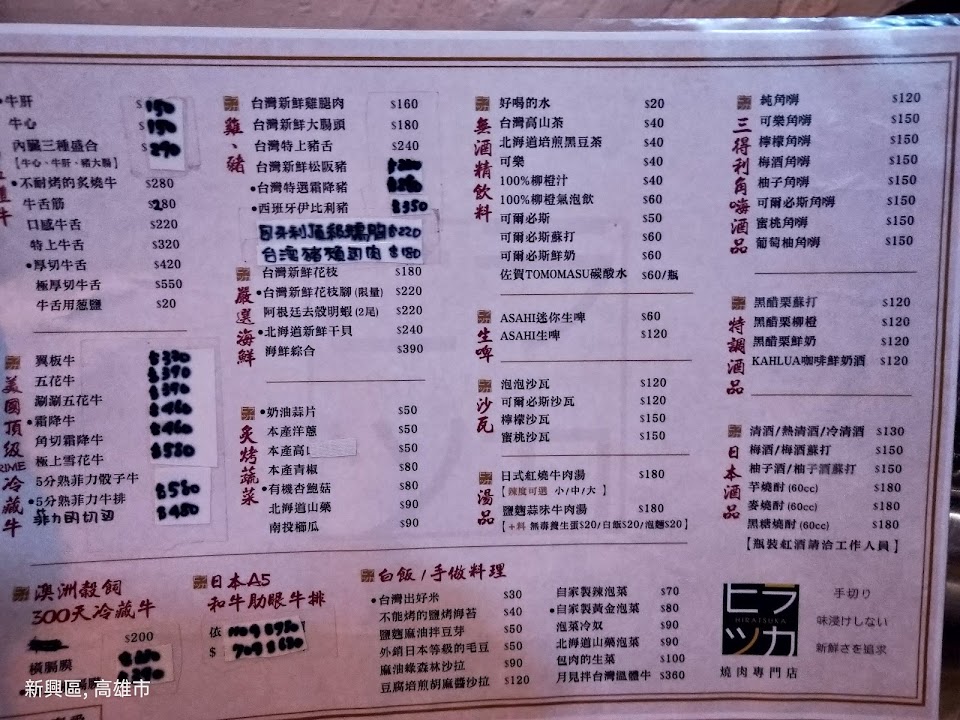 牛肝 $150
牛心 $150
內臟三種盛合 $290
【牛心、牛肝、豬大腸】
•不耐烤的炙燒牛 $280
牛舌筋 $280
口感牛舌 $220
特上牛舌 $320
•厚切牛舌 $420
極厚切牛舌 $550
牛舌用蔥鹽 $20
美國頂級PRIME冷藏牛
翼板牛 $330
五花牛 $390
涮涮五花牛 $390
•霜降牛 $460
角切霜降牛 $460
極上雪花牛 $580
5分熟菲力骰子牛
•5分熟菲力牛排 $560
菲力的切邊 $480
雞、豬
台灣新鮮雞腿肉 $160
台灣新鮮大腸頭 $180
台灣特上豬舌 $240
台灣新鮮松阪豬
•台灣特選霜降豬
•西班牙伊比利豬 $350
$220
台灣豬頰肉 $180
嚴選海鮮
台灣新鮮花枝 $180
•台灣新鮮花枝腳(限量) $220
阿根廷去殼明蝦(2尾) $220
•北海道新鮮干貝 $240
海鮮綜合 $390
炙烤蔬菜
•奶油蒜片 $50
本產洋蔥 $50
本產高 $50
本產青椒 $80
•有機杏鮑菇 $80
北海道山藥 $90
南投櫛瓜 $90
無酒精飲料
好喝的水 $20
台灣高山茶 $40
北海道焙煎黑豆茶 $40
可樂 $40
100%柳橙汁 $40
100%柳橙氣泡飲 $60
可爾必斯 $50
可爾必斯蘇打 $60
可爾必斯鮮奶 $60
佐賀TOMOMASU碳酸水 $60/瓶
生啤
ASAHI迷你生啤 $60
ASAHI生啤 $120
沙瓦
泡泡沙瓦 $120
可爾必斯沙瓦 $120
檸檬沙瓦 $150
蜜桃沙瓦 $150
湯品
日式紅燒牛肉湯 $180
【辣度可選 小/中/大 】
鹽麴蒜味牛肉湯 $180
【+料 無毒養生蛋$20/白飯$20/泡麵$20】
三得利角嗨酒品
純角嗨 $120
可樂角嗨 $150
檸檬角嗨 $150
梅酒角嗨 $150
柚子角嗨 $150
可爾必斯角嗨 $150
蜜桃角嗨 $150
葡萄柚角嗨 $150
特調酒品
黑醋栗蘇打 $120
黑醋栗柳橙 $120
黑醋栗鮮奶 $120
KAHLUA咖啡鮮奶酒 $120
日本酒品
清酒/熱清酒/冷清酒 $130
梅酒/梅酒蘇打 $150
柚子酒/柚子酒蘇打 $150
芋燒酎(60cc) $180
麥燒酎(60cc) $180
黑糖燒酎(60cc) $180
【瓶裝紅酒請洽工作人員】
澳洲穀飼
300天冷藏牛
$200
橫膈膜
日本A5
和牛肋眼牛排
依
$
白飯/手做料理
•台灣出好米 $30
不能烤的鹽烤海苔 $40
鹽麴麻油拌豆芽 $50
外銷日本等級的毛豆 $50
麻油綠森林沙拉 $90
豆腐焙煎胡麻醬沙拉 $120
自家製辣泡菜 $70
•自家製黃金泡菜 $80
泡菜冷奴 $90
北海道山藥泡菜 $90
包肉的生菜 $100
月見拌台灣溫體牛 $360
ヒラツカ
HIRATSUKA
燒肉專門店
手切り
味浸けしない
新鮮さを追求
新興區, 高雄市